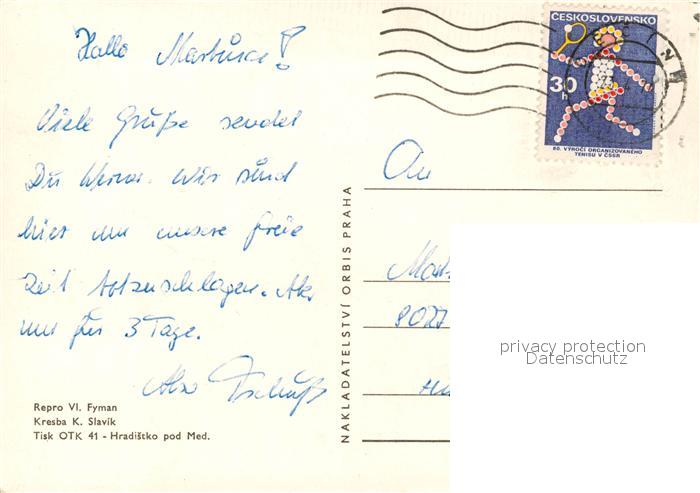 Hallo Martina!
Viele Grüße sendet
Dir Werner. Wir sind
hier um unsere freie
Zeit totzuschlagen. Aber
nur für 3 Tage.
Also Tschüß
Repro Vl. Fyman
Kresba K. Slavík
Tisk OTK 41 - Hradištko pod Med.
NAKLADATELSTVÍ ORBIS PRAHA
ČESKOSLOVENSKO
30 h
80. VÝROČÍ ORGANIZOVANÉHO
TENISU V ČSSR
An
8027
privacy protection
Datenschutz